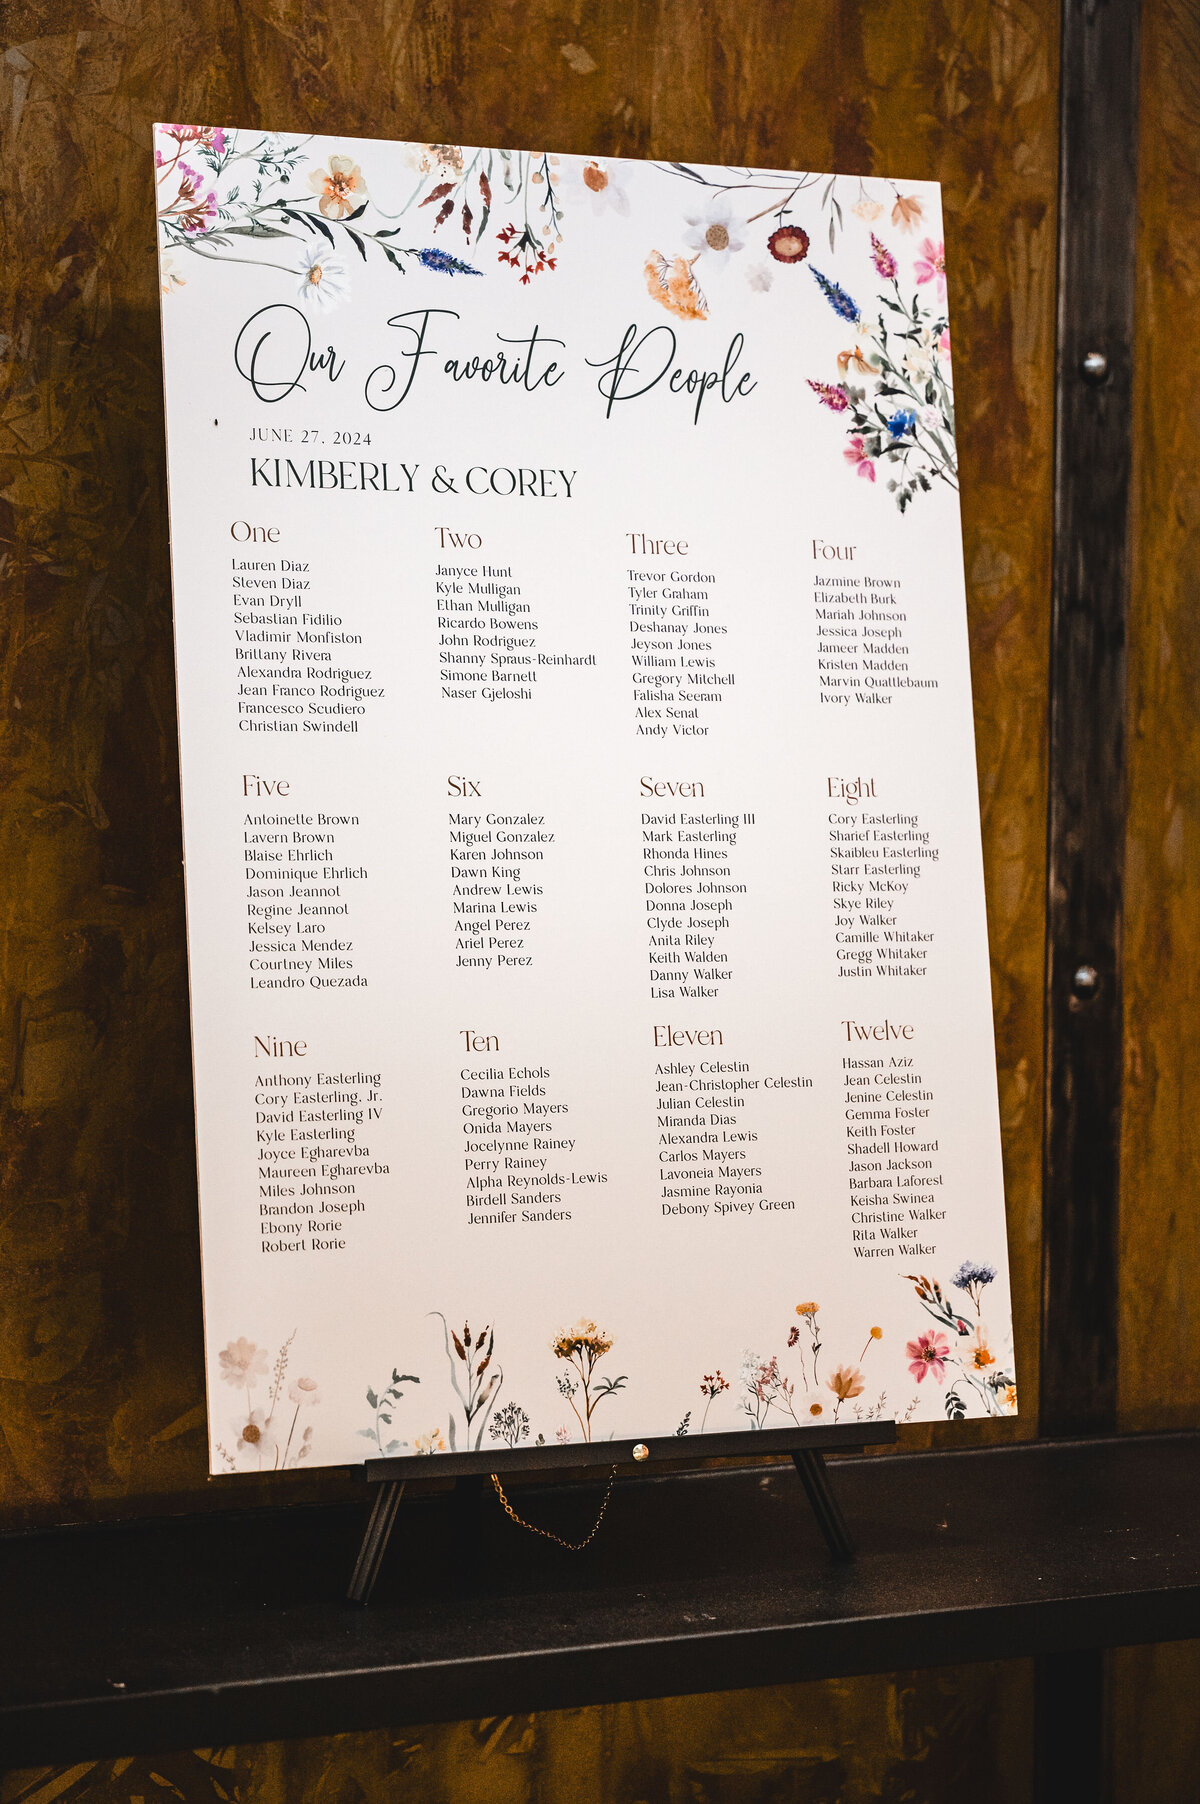 Our Favorite People
JUNE 27, 2024
KIMBERLY & COREY
One
Lauren Diaz
Steven Diaz
Evan Dryll
Sebastian Fidilio
Vladimir Monfiston
Brittany Rivera
Alexandra Rodriguez
Jean Franco Rodriguez
Francesco Scudiero
Christian Swindell
Two
Janyce Hunt
Kyle Mulligan
Ethan Mulligan
Ricardo Bowens
John Rodriguez
Shanny Spraus-Reinhardt
Simone Barnett
Naser Gjeloshi
Three
Trevor Gordon
Tyler Graham
Trinity Griffin
Deshanay Jones
Jeyson Jones
William Lewis
Gregory Mitchell
Falisha Seeram
Alex Senat
Andy Victor
Four
Jazmine Brown
Elizabeth Burk
Mariah Johnson
Jessica Joseph
Jameer Madden
Kristen Madden
Marvin Quattlebaum
Ivory Walker
Five
Antoinette Brown
Lavern Brown
Blaise Ehrlich
Dominique Ehrlich
Jason Jeannot
Regine Jeannot
Kelsey Laro
Jessica Mendez
Courtney Miles
Leandro Quezada
Six
Mary Gonzalez
Miguel Gonzalez
Karen Johnson
Dawn King
Andrew Lewis
Marina Lewis
Angel Perez
Ariel Perez
Jenny Perez
Seven
David Easterling III
Mark Easterling
Rhonda Hines
Chris Johnson
Dolores Johnson
Donna Joseph
Clyde Joseph
Anita Riley
Keith Walden
Danny Walker
Lisa Walker
Eight
Cory Easterling
Sharief Easterling
Skaibleu Easterling
Starr Easterling
Ricky McKoy
Skye Riley
Joy Walker
Camille Whitaker
Gregg Whitaker
Justin Whitaker
Nine
Anthony Easterling
Cory Easterling, Jr.
David Easterling IV
Kyle Easterling
Joyce Egharevba
Maureen Egharevba
Miles Johnson
Brandon Joseph
Ebony Rorie
Robert Rorie
Ten
Cecilia Echols
Dawna Fields
Gregorio Mayers
Onida Mayers
Jocelynne Rainey
Perry Rainey
Alpha Reynolds-Lewis
Birdell Sanders
Jennifer Sanders
Eleven
Ashley Celestin
Jean-Christopher Celestin
Julian Celestin
Miranda Dias
Alexandra Lewis
Carlos Mayers
Lavoneia Mayers
Jasmine Rayonia
Debony Spivey Green
Twelve
Hassan Aziz
Jean Celestin
Jenine Celestin
Gemma Foster
Keith Foster
Shadell Howard
Jason Jackson
Barbara Laforest
Keisha Swinea
Christine Walker
Rita Walker
Warren Walker